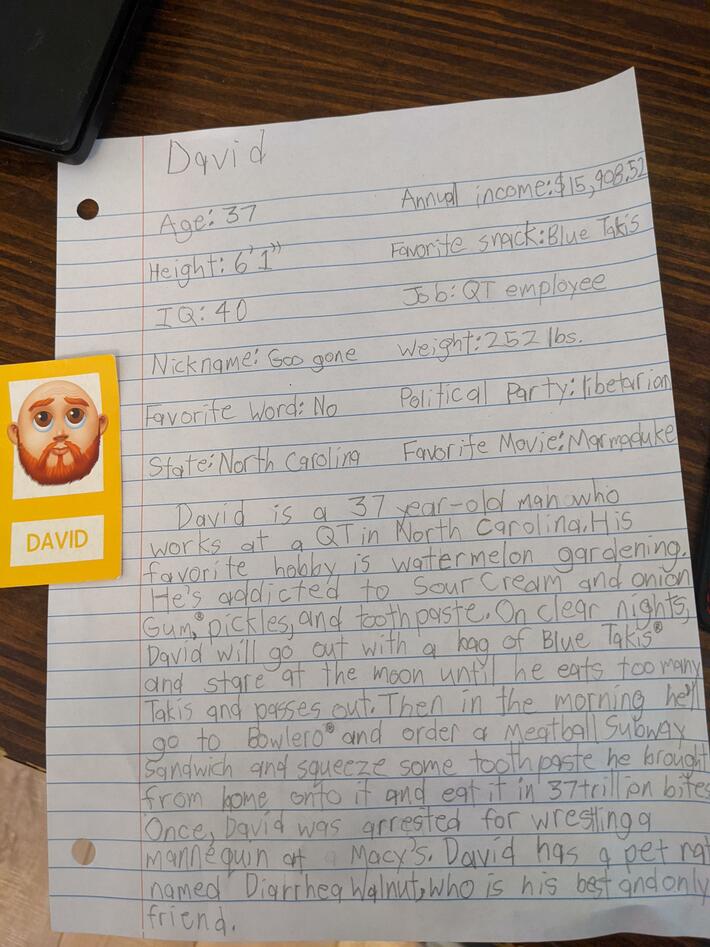 David
Age: 37
Annual income: $15,908.52
Height: 6'1"
Favorite snack: Blue Takis
IQ: 40
Job: QT employee
Nickname: Goo gone
Weight: 252 lbs.
Favorite Word: No
Political Party: libetarian
State: North Carolina
Favorite Movie: Marmaduke
DAVID
David is a 37 year-old man who
works at a QT in North Carolina. His
favorite hobby is watermelon gardening.
He's addicted to Sour Cream and onion
Gum,® pickles, and toothpaste. On clear nights,
David will go out with a bag of Blue Takis®
and stare at the moon until he eats too many
Takis and passes out. Then in the morning he'll
go to Bowlero® and order a Meatball Subway
Sandwich and squeeze some toothpaste he brought
from home onto it and eat it in 37 trillion bites
Once, David was arrested for wrestling a
mannequin at a Macy's. David has a pet rat
named Diarrhea Walnut, who is his best and only
friend.